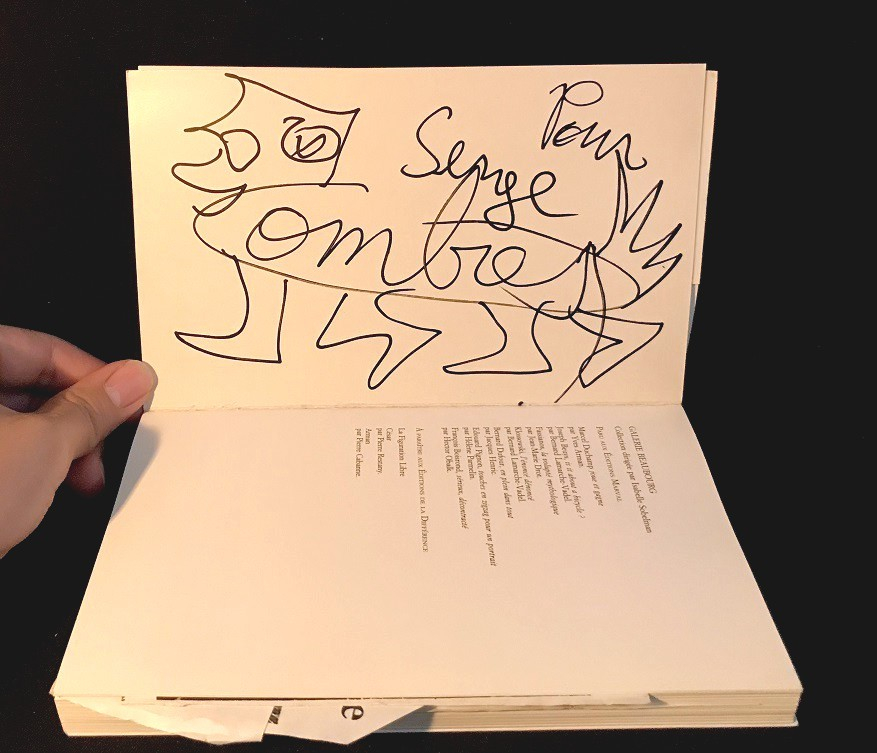 Pour
Serge
ombre
GALERIE BEAUBOURG
Collection dirigée par Isabelle Sobelman
PARU AUX ÉDITIONS MARVAL
Marcel Duchamp joue et gagne
par Yves Arman.
Joseph Beuys, is it about a bicycle ?
par Bernard Lamarche-Vadel.
Fassianos, la volupté mythologique
par Jean-Marie Drot.
Klossowski, l'énoncé dénoncé
par Bernard Lamarche-Vadel.
Bernard Dufour, en plein dans tout
par Jacques Henric.
Edouard Pignon, touches en zigzag pour un portrait
par Hélène Parmelin.
François Boisrond, décontracté
par Hector Obalk.
À PARAÎTRE AUX ÉDITIONS DE LA DIFFÉRENCE
La Figuration Libre
César
par Pierre Restany.
Arman
par Pierre Cabanne.